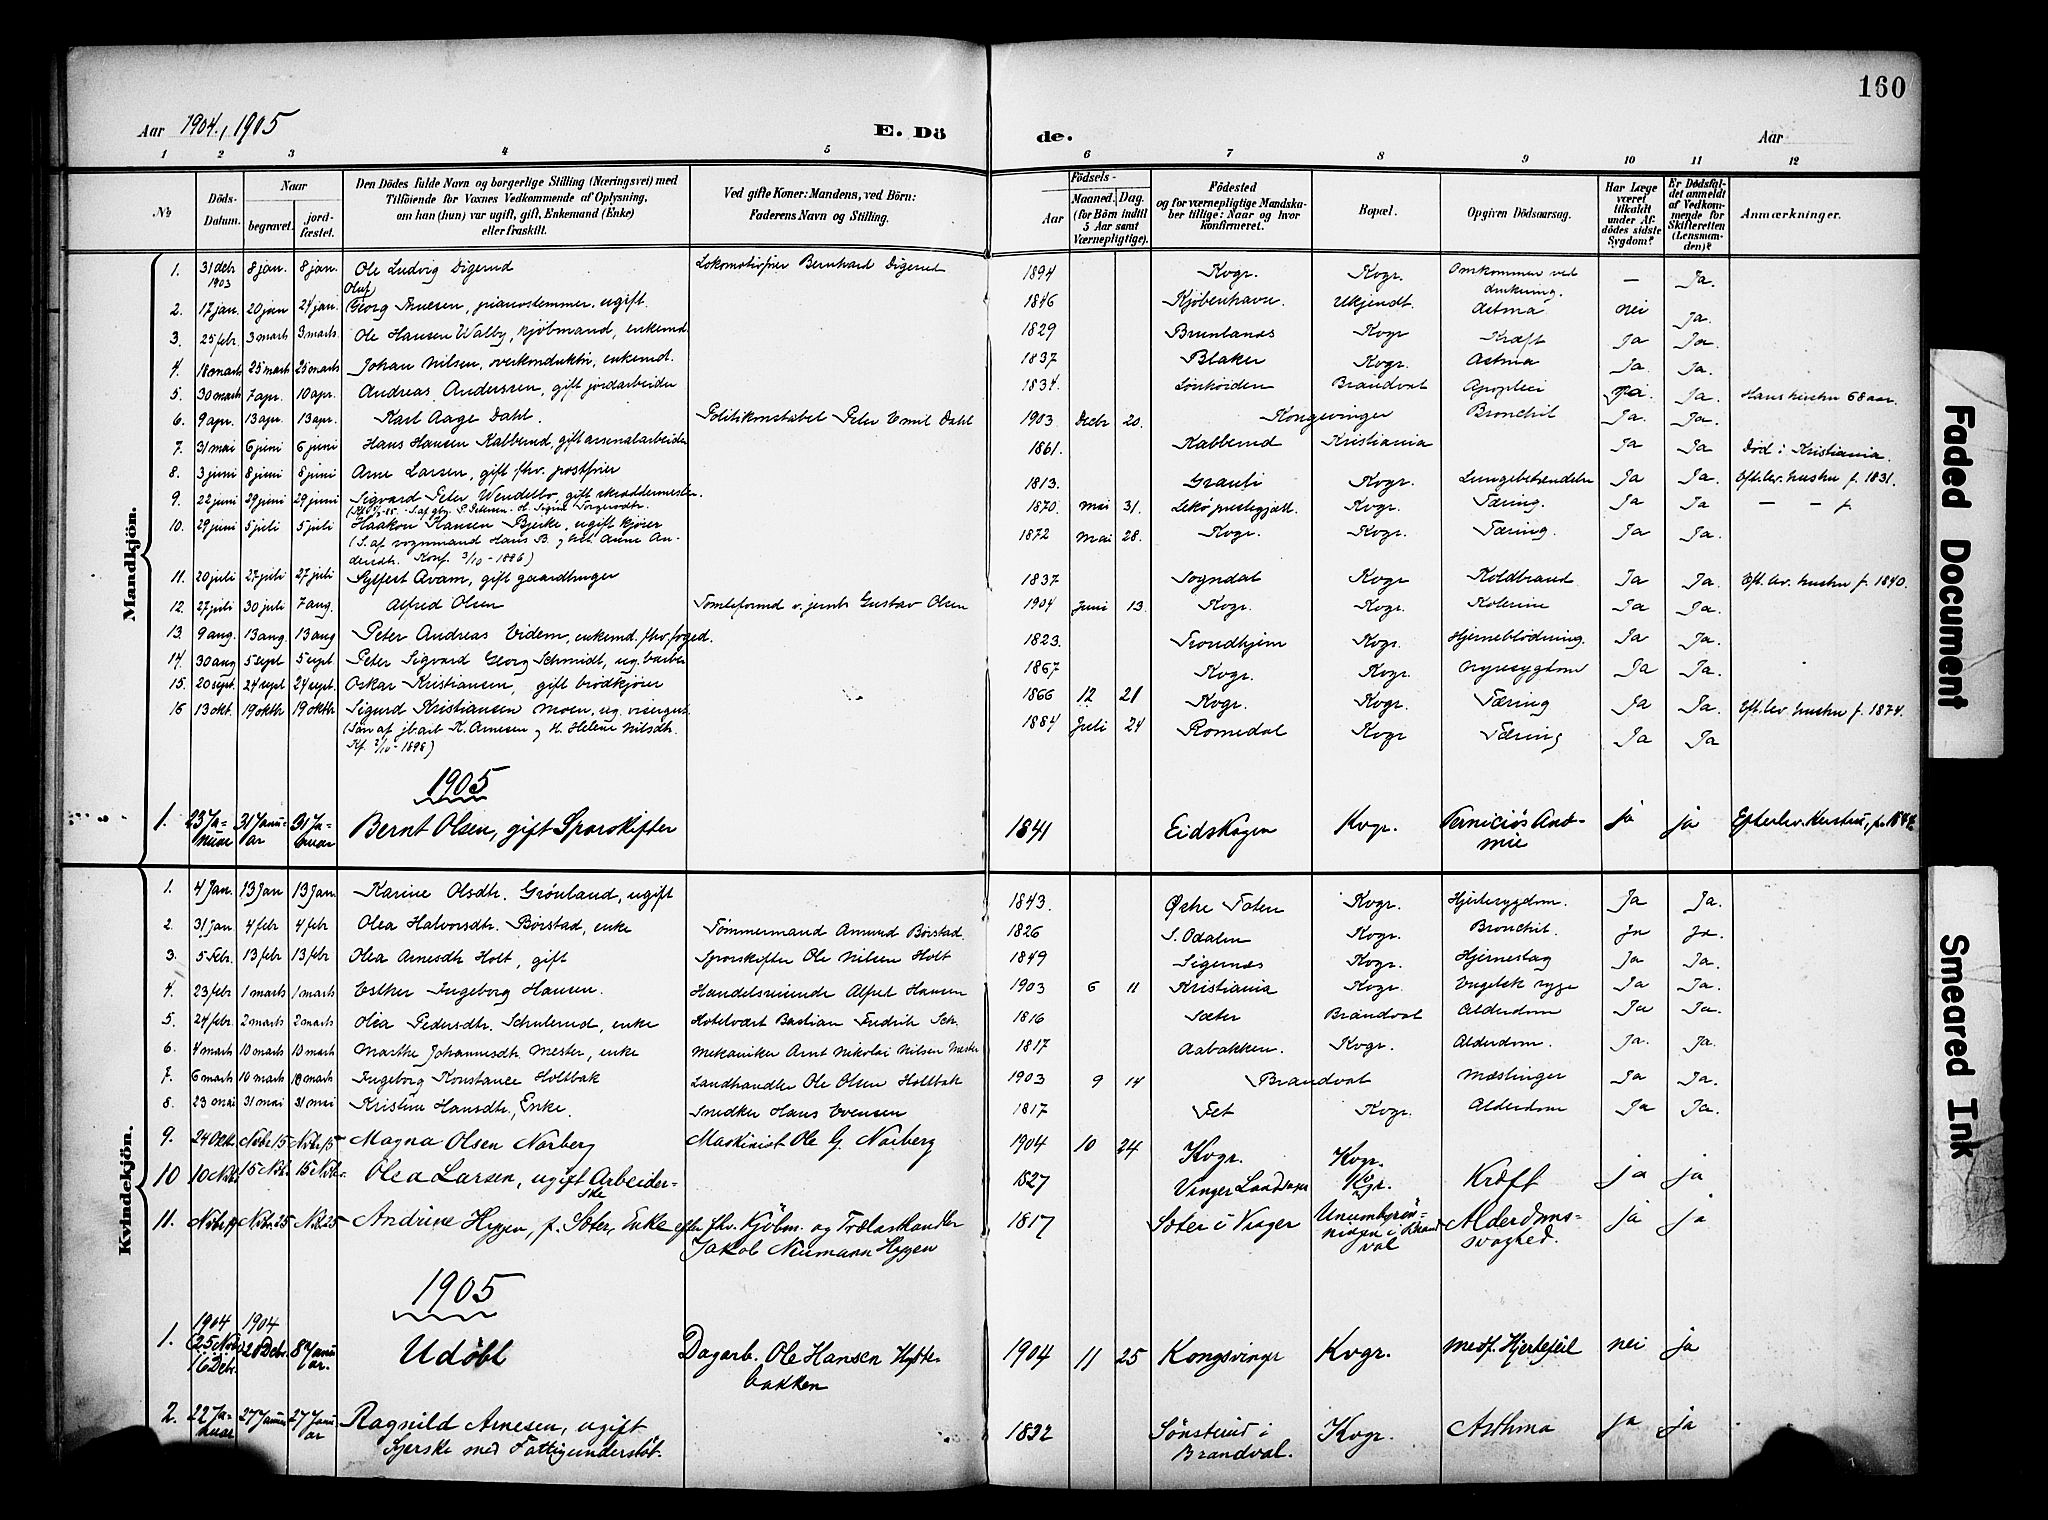 160
Aar 1904, 1905 E. Dö de. Aar
1 2 3 4 5 6 7 8 9 10 11 12
№ Döds-Datum. Naar begravet. jordfæstet. Den Dödes fulde Navn og borgerlige Stilling (Næringsvei) med Tilföiende for Voxnes Vedkommende af Oplysning, om han (hun) var ugift, gift, Enkemand (Enke) eller fraskilt. Ved gifte Koner: Mandens, ved Börn: Faderens Navn og Stilling. Födsels- Aar Maaned. Dag. (for Börn indtil 5 Aar samt Værnepligtige). Födested og for værnepligtige Mandskaber tillige: Naar og hvor konfirmeret. Bopæl. Opgiven Dödsaarsag. Har Læge været tilkaldt under Afdödes sidste Sygdom? Er Dödsfaldet anmeldt af Vedkommende for Skifteretten (Lensmanden)? Anmærkninger.
Mandkjön.
1. 31 decbr 1903 8 jan. 8 jan. Ole Ludvig Digerud Lokomotivfører Bernhard Digerud 1894 Kvgr. Kvgr. Omkommer ved drukning. — Ja.
2. 17 jan. 20 jan 24 jan. Georg Oluf Thuesen, pianostemmer, ugift. 1846 Kjøbenhavn. Ukjendt. Astma nei Ja.
3. 25 febr. 3 marts 3 marts Ole Hansen Walby, kjøbmand, enkemd. 1829 Brunlanes Kvgr Kræft Ja Ja.
4. 18 marts 25 marts 25 marts Johan Nilsen, overkonduktør, enkemd. 1837 Blaker Kvgr. Astma Ja. Ja.
5. 30 marts 7 apr. 10 apr. Andreas Anderssen, gift jordarbeider 1834. Brandval Apoplexi Ja. Hans hustru 68 aar.
6. 9 apr. 13 apr. 13 apr. Karl Aage Dahl. Politikonstabel Peter Emil Dahl 1903 decbr 20. Kongsvinger Bronchit Ja. Ja.
7. 31 mai 6 juni 6 juni Hans Hansen Rabberud, gift arsenalarbeider 1861. Rabberud Kristiania Ja Ja Død i Kristiania.
8. 3 juni 8 juni 8 juni Arne Larsen, gift fhv. postfører 1813. Grauli Kvgr. Lungebetændelse Ja Ja. Eft.lev. hustru f. 1831.
9. 22 juni 29 juni 29 juni Sigvard Peter Wendelbo, gift skræddermester. 1870 mai 31. Lekø prestegjæld. Kvgr. Tæring. Ja Ja — — f.
10. 29 juni 5 juli 5 juli Haakon Hansen Bjerke, ugift kjører 1872 mai 28. Kvgr. Kvgr. Tæring. Ja Ja.
(S. af vognmand Hans B. og hst. Anne Andersdtr. Konf. 3/10-1886)
11. 20 juli 27 juli 27 juli Sylfest Avam, gift gaardbruger 1837 Sogndal Kvgr. Koldbrand. Ja Ja. Eft. lev. hustru f. 1840.
12. 27 juli 30 juli 7 aug. Alfred Olsen Tomteformd v. jernb. Gustav Olsen 1904 Juni 13. Kvgr. Kvgr. Kolerine Ja Ja.
13. 9 aug. 13 aug. 13 aug Peter Andreas Eidem, enkemd. fhv. foged. 1823. Trondhjem Kvgr. Hjerneblødning. Ja Ja.
14. 30 aug 5 sept 5 sept. Peter Sigvard Georg Schmidt, ug. barber 1867 Kvgr. Kvgr. Nyresygdom Ja Ja.
15. 20 sept. 24 sept 24 sept. Oskar Kristiansen, gift brødkjører 1866 12 21 Kvgr. Kvgr. Tæring Ja Ja. Eft. lev. hustru f. 1874.
16 13 okt. 19 oktbr 19 oktbr Sigurd Kristiansen Moen, ug. visergut. 1884 Juli 24 Romedal Kvgr Tæring Ja Ja
(Søn af jb.arb K. Arnesen og H. Helene Nilsdtr. Kf. 2/10-1898)
1905
1. 23 Januar 31 Januar 31 Januar Bernt Olsen, gift Sporskifter 1841 Eidskogen Kvgr. Perniciøs Anæmie ja ja Efterlev. Hustru, f. 1844
Kvindekjön.
1. 4 Jan. 13 Jan 13 Jan. Karine Olsdtr. Grønland, ugift 1843. Østre Toten Kvgr. Hjertesygdom. Ja Ja.
2. 31 Jan 4 febr 4 febr Olea Halvorsdtr. Børstad, enke Tømmermand Amund Børstad. 1826 S. Odalen Kvgr. Bronchit. ja Ja.
3. 5 Febr. 13 febr 13 febr Olea Arnesdtr Holt, gift Sporskifter Ole Nilsen Holt 1849 Sigernæs Kvgr. Hjerneslag Ja Ja.
4. 23 febr 1 marts 1 marts Esther Ingeborg Hansen. Handelsreisende Alfred Hansen 1903 6 11 Kristiania Kvgr. Engelsk syge Ja Ja.
5. 24 febr. 2 marts 2 marts Olea Pedersdtr. Schulerud, enke Hotelvært Bastian Fredrik Sch. 1816 Sæter Brandval Alderdom Ja Ja.
6. 4 marts 10 marts 10 marts Marthe Johannesdtr. Mester, enke Mekaniker Arnt Nikolai Nilsen Mester 1817 Aabakken. Kvgr. Alderdom. Ja. Ja.
7. 6 marts 10 marts 10 marts Ingeborg Konstance Holtbak Landhandler Ole Olsen Holtbak 1903 9 14 Brandval Mæslinger Ja Ja.
8. 23 mai 31 mai 31 mai Kristine Hansdtr., Enke. Snedker Hans Evensen 1817 Fet Kvgr. Alderdom Ja Ja.
9. 24 Oktb. Novbr 15 Novbr 15 Magna Olsen Norberg Maskinist Ole G. Norberg 1904 10 24 Kvgr. Kvgr.
10 10 Novb. 15 Novbr. 15 Novbr. Olea Larsen, ugift Arbeiderske 1827 Vinger Landsogn Kvgr. Kræft ja ja
11. Novbr Novbr. 25 Nvbr 25 Andrine Hygen, f. Sæter, Enke efter fhv. Kjøbm. og Trælasthandler Jakob Neumann Hygen 1817 Sæter i Vinger Brandval Alderdomssvaghed. ja ja
1905
1. 1904 (25 Nvbr) 16 Debr. 1904 20 Debr. 8 Januar. Udøbt Dagarb. Ole Hansen Hyttebakken 1904 11 25 Kongsvinger Kvgr. Medf. Hjertefeil nei ja
2. 22 Januar 27 Januar 27 Januar Ragnild Arnesen, ugift Syerske med Fattigunderstøt. 1832 Sønsterud i Brandval. Kvgr. Asthma ja ja
Faded Document
Smeared Ink